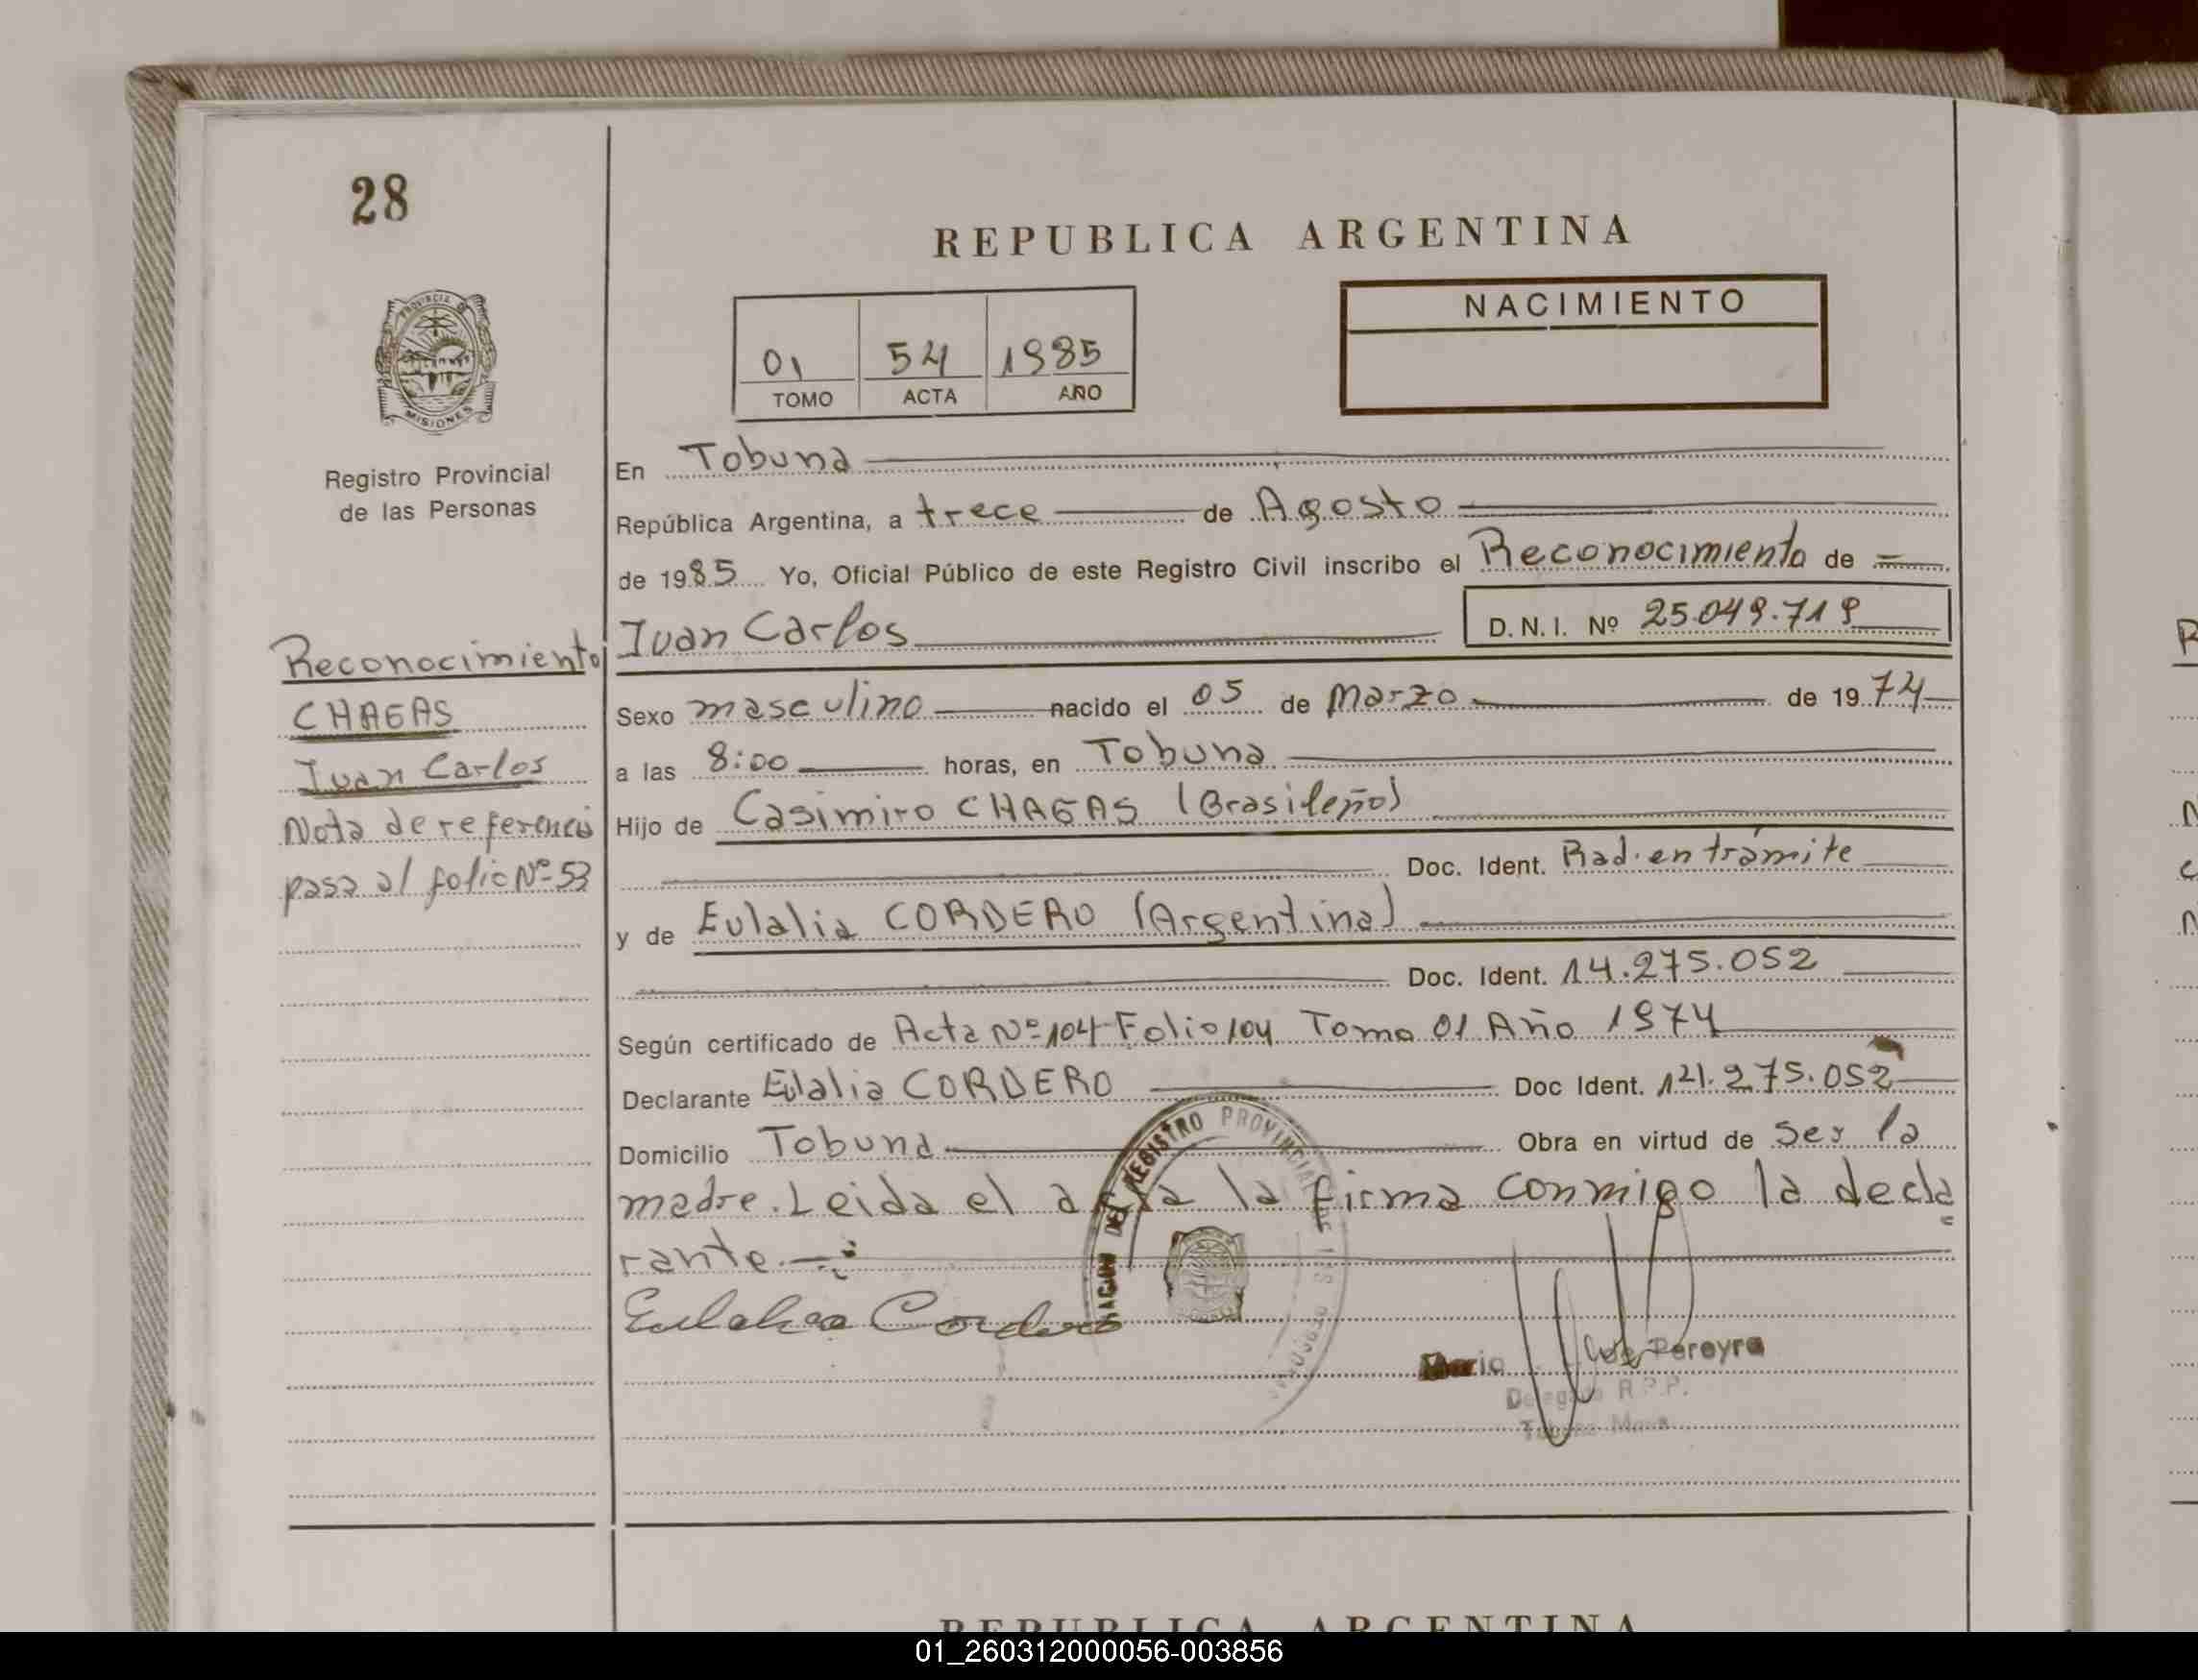 28
REPUBLICA ARGENTINA
NACIMIENTO
01 54 1985
TOMO ACTA AÑO
PROVINCIA DE
MISIONES
Registro Provincial
de las Personas
En Tobuna
República Argentina, a trece de Agosto
de 1985 Yo, Oficial Público de este Registro Civil inscribo el Reconocimiento de =
Juan Carlos D.N.I. Nº 25.049.719
Sexo masculino nacido el 05 de Marzo de 1974
a las 8:00 horas, en Tobuna
Hijo de Casimiro CHAGAS (Brasileño)
Doc. Ident. Rad. en trámite
y de Eulalia CORDERO (Argentina)
Doc. Ident. 14.275.052
Según certificado de Acta Nº 104 Folio 104 Tomo 01 Año 1974
Declarante Eulalia CORDERO Doc Ident. 14.275.052
Domicilio Tobuna Obra en virtud de ser la
madre. Leida el acta la firma conmigo la decla
rante.
Eulalia Cordero
REGISTRO PROVINCIAL DE LAS
Pereyra
Delegado R.P.P.
Reconocimiento
CHAGAS
Juan Carlos
Nota de referencia
pasa al folio Nº 53
REPUBLICA ARGENTINA
01_260312000056-003856